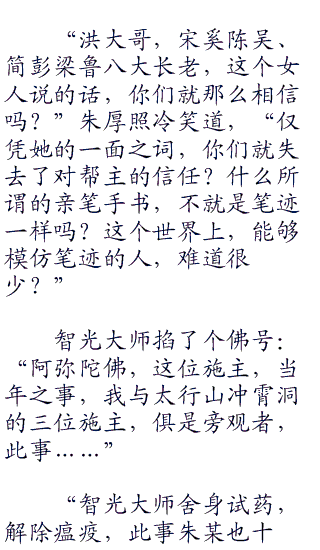 “洪大哥，宋奚陈吴、
简彭梁鲁八大长老，这个女
人说的话，你们就那么相信
吗？”朱厚照冷笑道，“仅
凭她的一面之词，你们就失
去了对帮主的信任？什么所
谓的亲笔手书，不就是笔迹
一样吗？这个世界上，能够
模仿笔迹的人，难道很
少？”
智光大师掐了个佛号：
“阿弥陀佛，这位施主，当
年之事，我与太行山冲霄洞
的三位施主，俱是旁观者，
此事……”
“智光大师舍身试药，
解除瘟疫，此事朱某也十